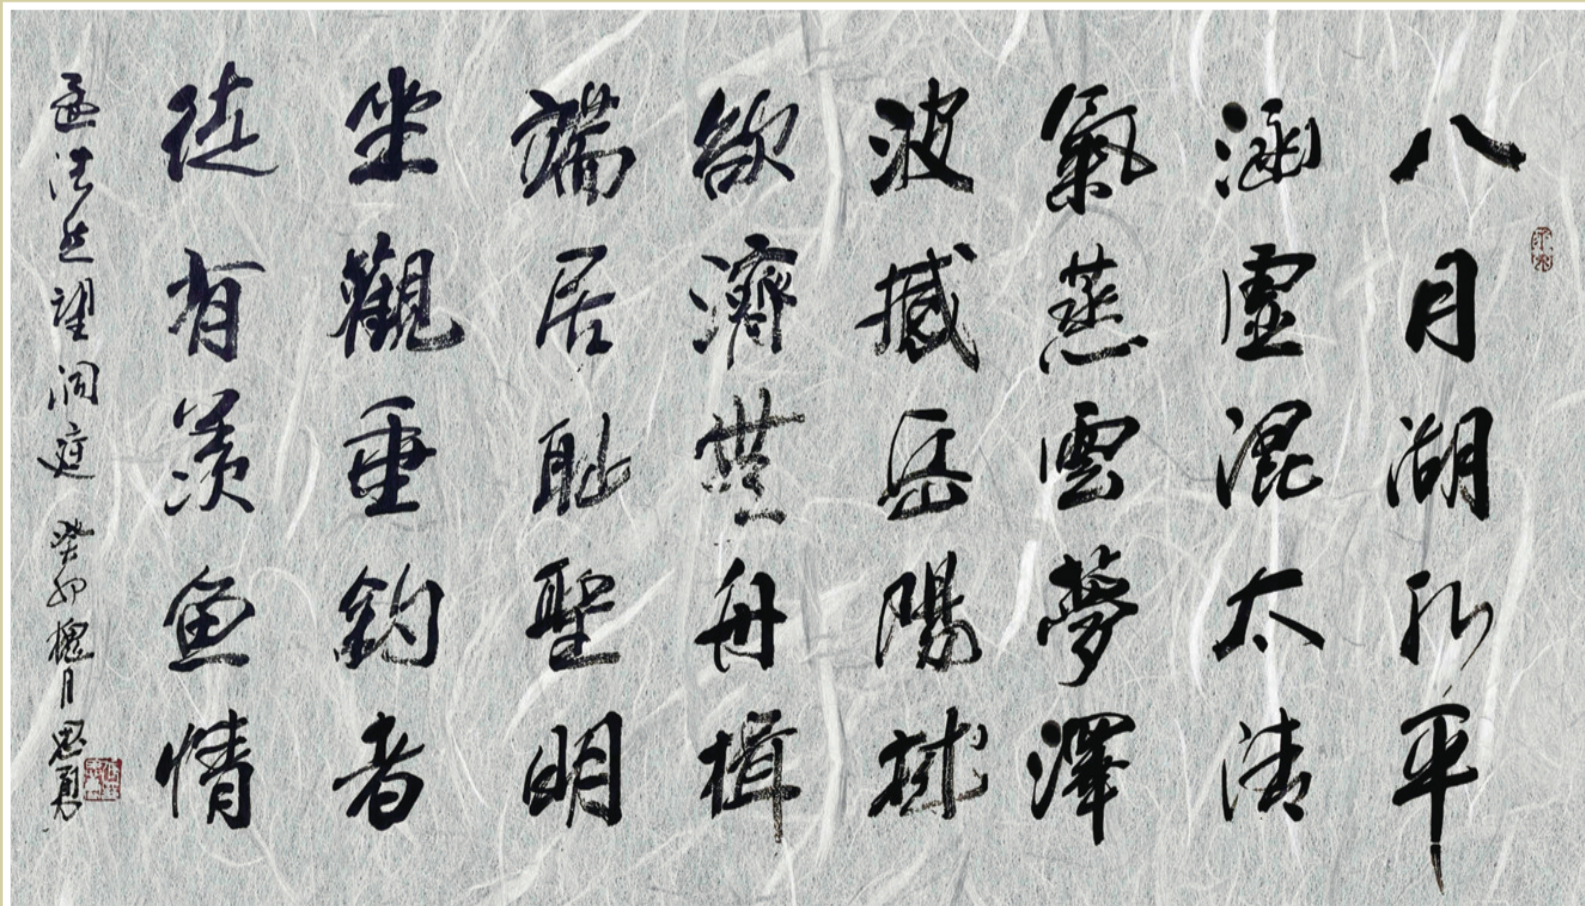 八月湖水平
涵虛混太清
氣蒸雲夢澤
波撼岳陽城
欲濟無舟楫
端居耻聖明
坐觀垂釣者
徒有羨魚情
孟浩然望洞庭 癸卯槐月思勇